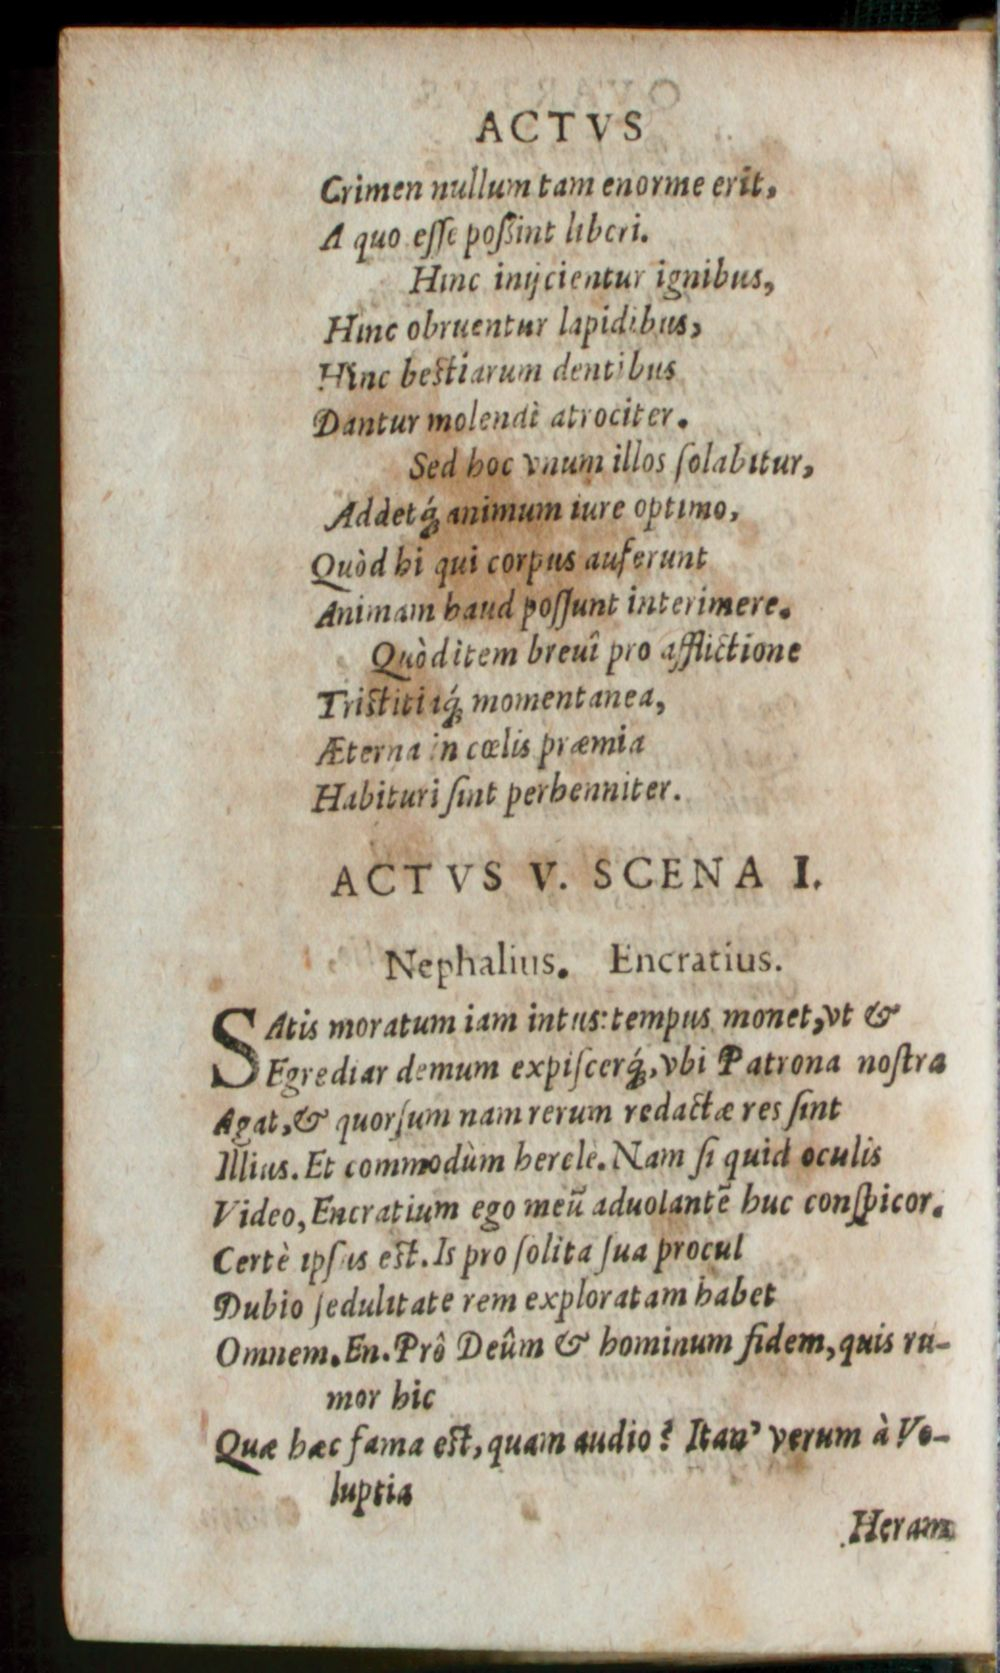 ACTVS
Crimen nullum tam enorme erit,
A quo esse poßint liberi.
Hinc inijcientur ignibus,
Hinc obruentur lapidibus,
Hinc bestiarum dentibus
Dantur molendi atrociter.
Sed hoc vnum illos solabitur,
Addetq́; animum iure optimo,
Quòd hi qui corpus auferunt
Animam haud possunt interimere.
Quòd item breui pro afflictione
Tristitiaq́; momentanea,
Æterna in cœlis præmia
Habituri sint perhenniter.
ACTVS V. SCENA I.
Nephalius. Encratius.
SAtis moratum iam intus: tempus monet, vt &
Egrediar demum expiscerq́;, vbi Patrona nostra
Agat, & quorsum nam rerum redactæ res sint
Illius. Et commodùm hercle. Nam si quid oculis
Video, Encratium ego meũ aduolantẽ huc conspicor.
Certè ipsus est. Is pro solita sua procul
Dubio sedulitate rem exploratam habet
Omnem. En. Prô Deûm & hominum fidem, quis ru-
mor hic
Quæ hæc fama est, quam audio? Itan' verum à Vo-
luptia
Heram